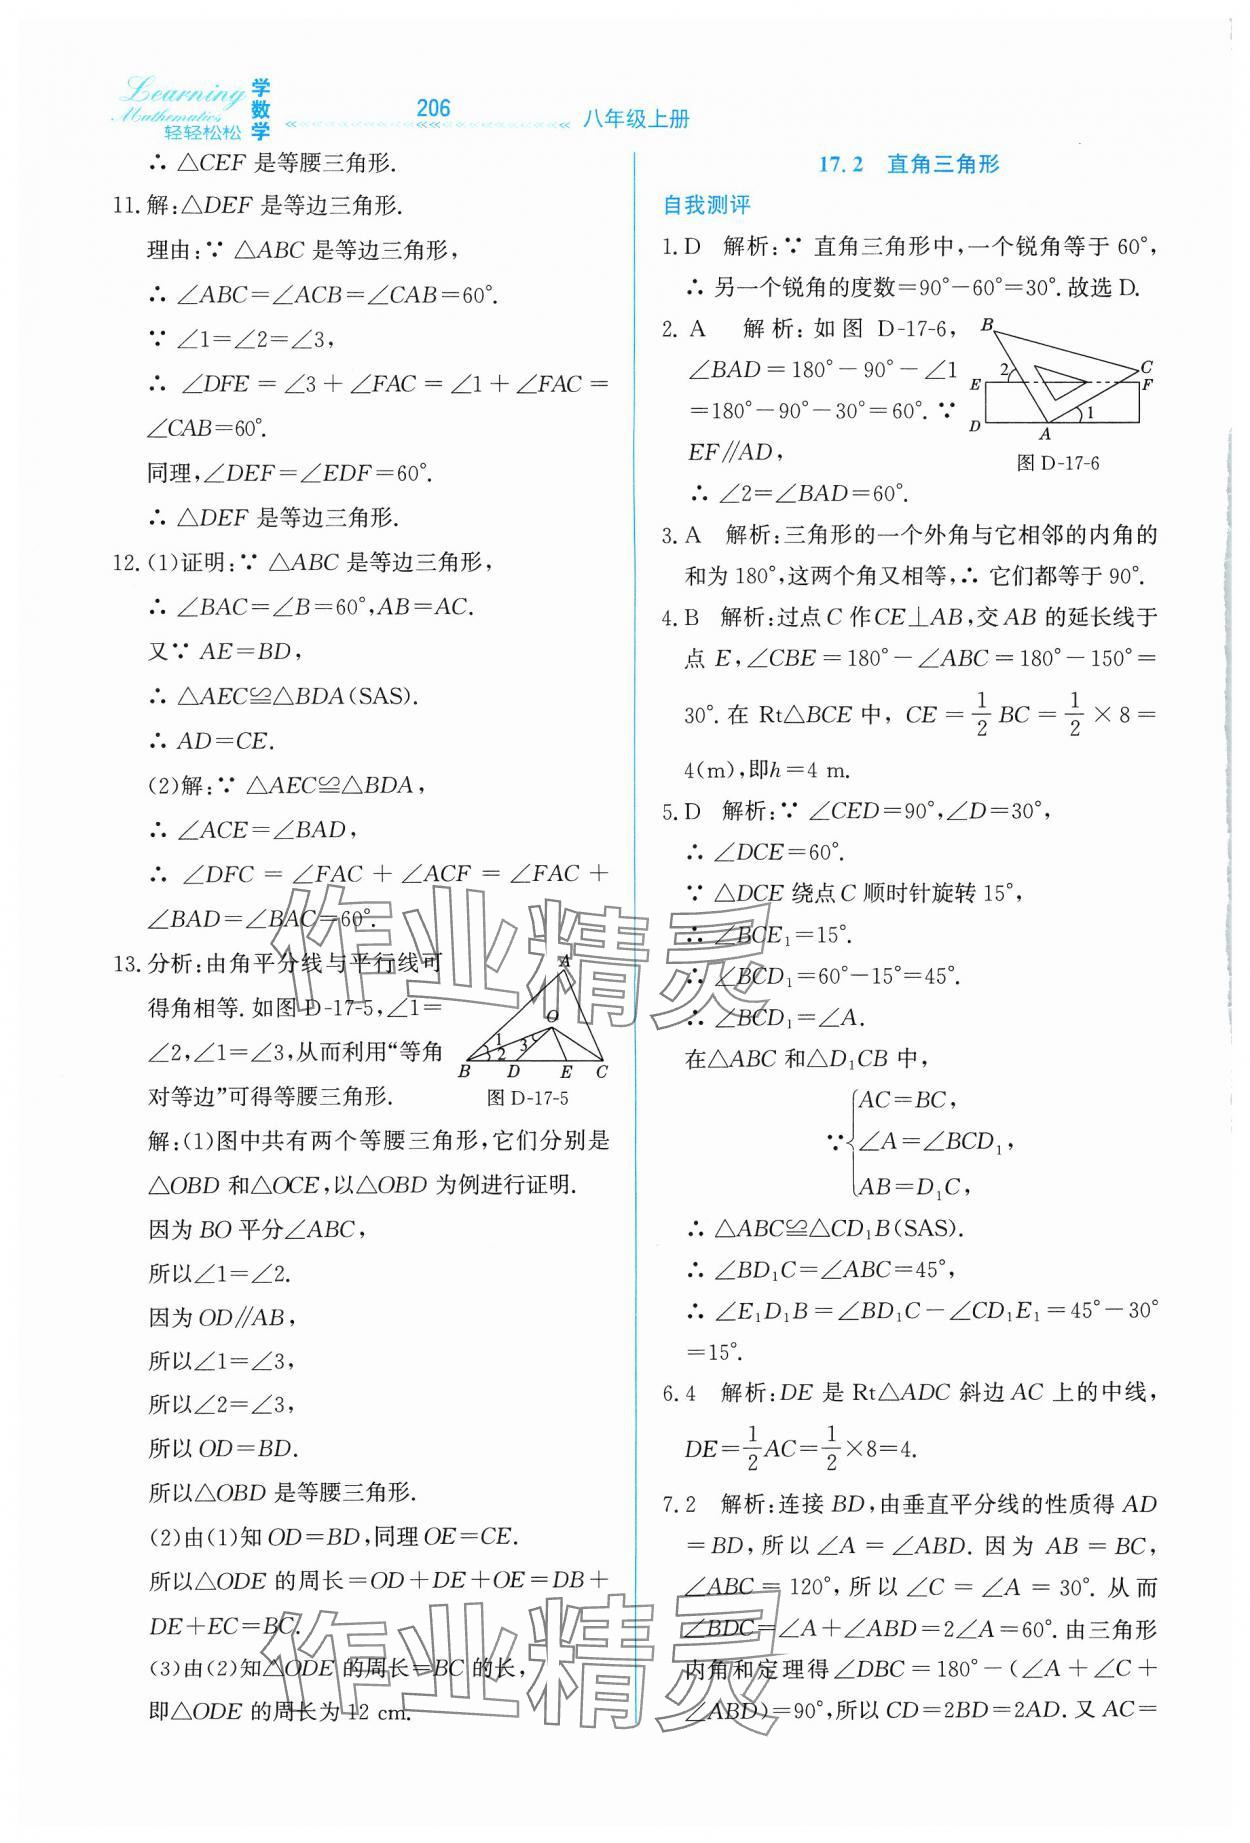 Learning
Mathematics
轻轻松松
学数学
206
八年级上册
∴ △CEF 是等腰三角形.
11. 解:△DEF 是等边三角形.
理由:∵ △ABC 是等边三角形,
∴ ∠ABC=∠ACB=∠CAB=60°.
∵ ∠1=∠2=∠3,
∴ ∠DFE=∠3+∠FAC=∠1+∠FAC=
∠CAB=60°.
同理,∠DEF=∠EDF=60°.
∴ △DEF 是等边三角形.
12. (1)证明:∵ △ABC 是等边三角形,
∴ ∠BAC=∠B=60°,AB=AC.
又∵ AE=BD,
∴ △AEC≌△BDA(SAS).
∴ AD=CE.
(2)解:∵ △AEC≌△BDA,
∴ ∠ACE=∠BAD,
∴ ∠DFC=∠FAC+∠ACF=∠FAC+
∠BAD=∠BAC=60°.
13. 分析:由角平分线与平行线可
得角相等. 如图 D-17-5,∠1=
∠2,∠1=∠3,从而利用“等角
对等边”可得等腰三角形.
A
O
1
2
3
B D E C
图 D-17-5
解:(1)图中共有两个等腰三角形,它们分别是
△OBD 和△OCE,以△OBD 为例进行证明.
因为 BO 平分∠ABC,
所以∠1=∠2.
因为 OD∥AB,
所以∠1=∠3,
所以∠2=∠3,
所以 OD=BD.
所以△OBD 是等腰三角形.
(2)由(1)知 OD=BD,同理 OE=CE.
所以△ODE 的周长=OD+DE+OE=DB+
DE+EC=BC.
(3)由(2)知△ODE 的周长=BC 的长,
即△ODE 的周长为 12 cm.
17.2 直角三角形
自我测评
1. D 解析:∵ 直角三角形中,一个锐角等于 60°,
∴ 另一个锐角的度数=90°-60°=30°.故选 D.
2. A 解析:如图 D-17-6,
∠BAD=180°-90°-∠1
=180°-90°-30°=60°.∵
EF∥AD,
∴ ∠2=∠BAD=60°.
B
C
E
2
F
D
A
1
图 D-17-6
3. A 解析:三角形的一个外角与它相邻的内角的
和为 180°,这两个角又相等,∴ 它们都等于 90°.
4. B 解析:过点 C 作 CE⊥AB,交 AB 的延长线于
点 E,∠CBE=180°-∠ABC=180°-150°=
30°. 在 Rt△BCE 中,CE=1/2 BC=1/2×8=
4(m),即h=4 m.
5. D 解析:∵ ∠CED=90°,∠D=30°,
∴ ∠DCE=60°.
∵ △DCE 绕点 C 顺时针旋转 15°,
∴ ∠BCE₁=15°.
∴ ∠BCD₁=60°-15°=45°.
∴ ∠BCD₁=∠A.
在△ABC 和△D₁CB 中,
AC=BC,
∵ ∠A=∠BCD₁,
AB=D₁C,
∴ △ABC≌△CD₁B(SAS).
∴ ∠BD₁C=∠ABC=45°,
∴ ∠E₁D₁B=∠BD₁C-∠CD₁E₁=45°-30°
=15°.
6. 4 解析:DE 是 Rt△ADC 斜边 AC 上的中线,
DE=1/2AC=1/2×8=4.
7. 2 解析:连接 BD,由垂直平分线的性质得 AD
=BD,所以∠A=∠ABD. 因为 AB=BC,
∠ABC=120°,所以∠C=∠A=30°. 从而
∠BDC=∠A+∠ABD=2∠A=60°.由三角形
内角和定理得∠DBC=180°-(∠A+∠C+
∠ABD)=90°,所以 CD=2BD=2AD. 又 AC=
作业精灵
作业精灵